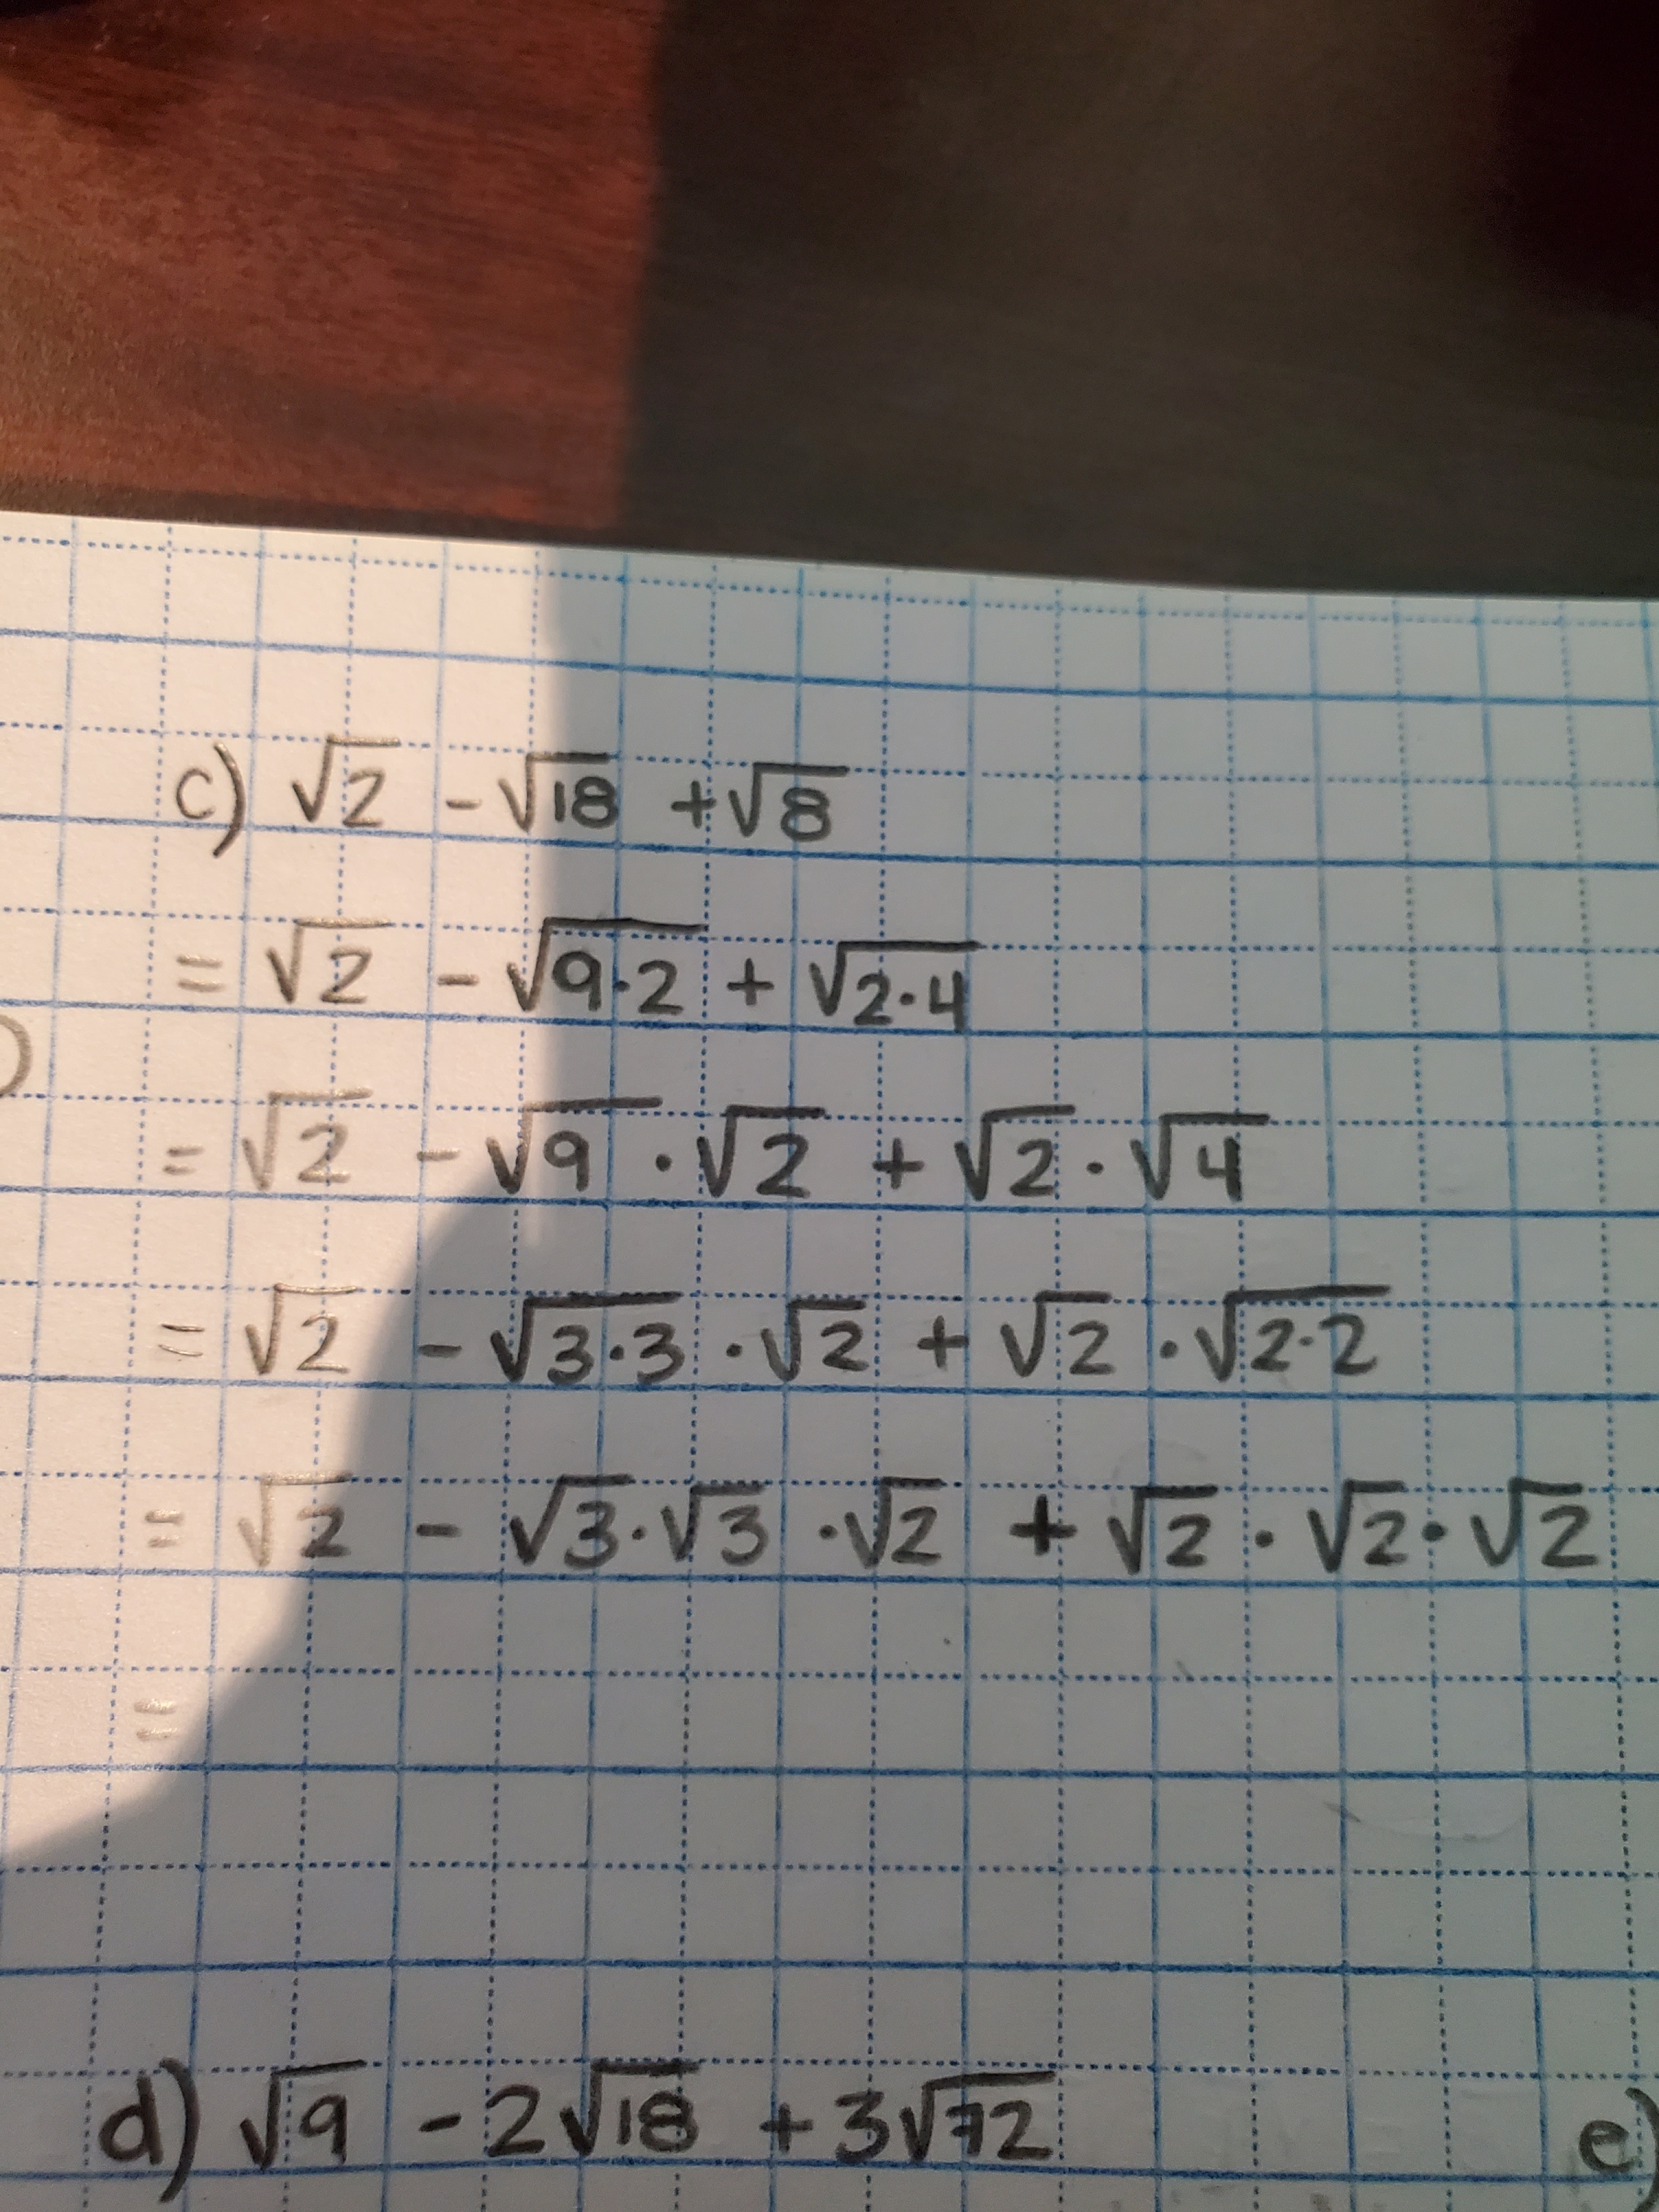 c) √2 - √18 + √8
= √2 - √9·2 + √2·4
= √2 - √9 · √2 + √2 · √4
= √2 - √3·3 · √2 + √2 · √2·2
= √2 - √3 · √3 · √2 + √2 · √2 · √2
=
d) √9 - 2√18 + 3√72
e)